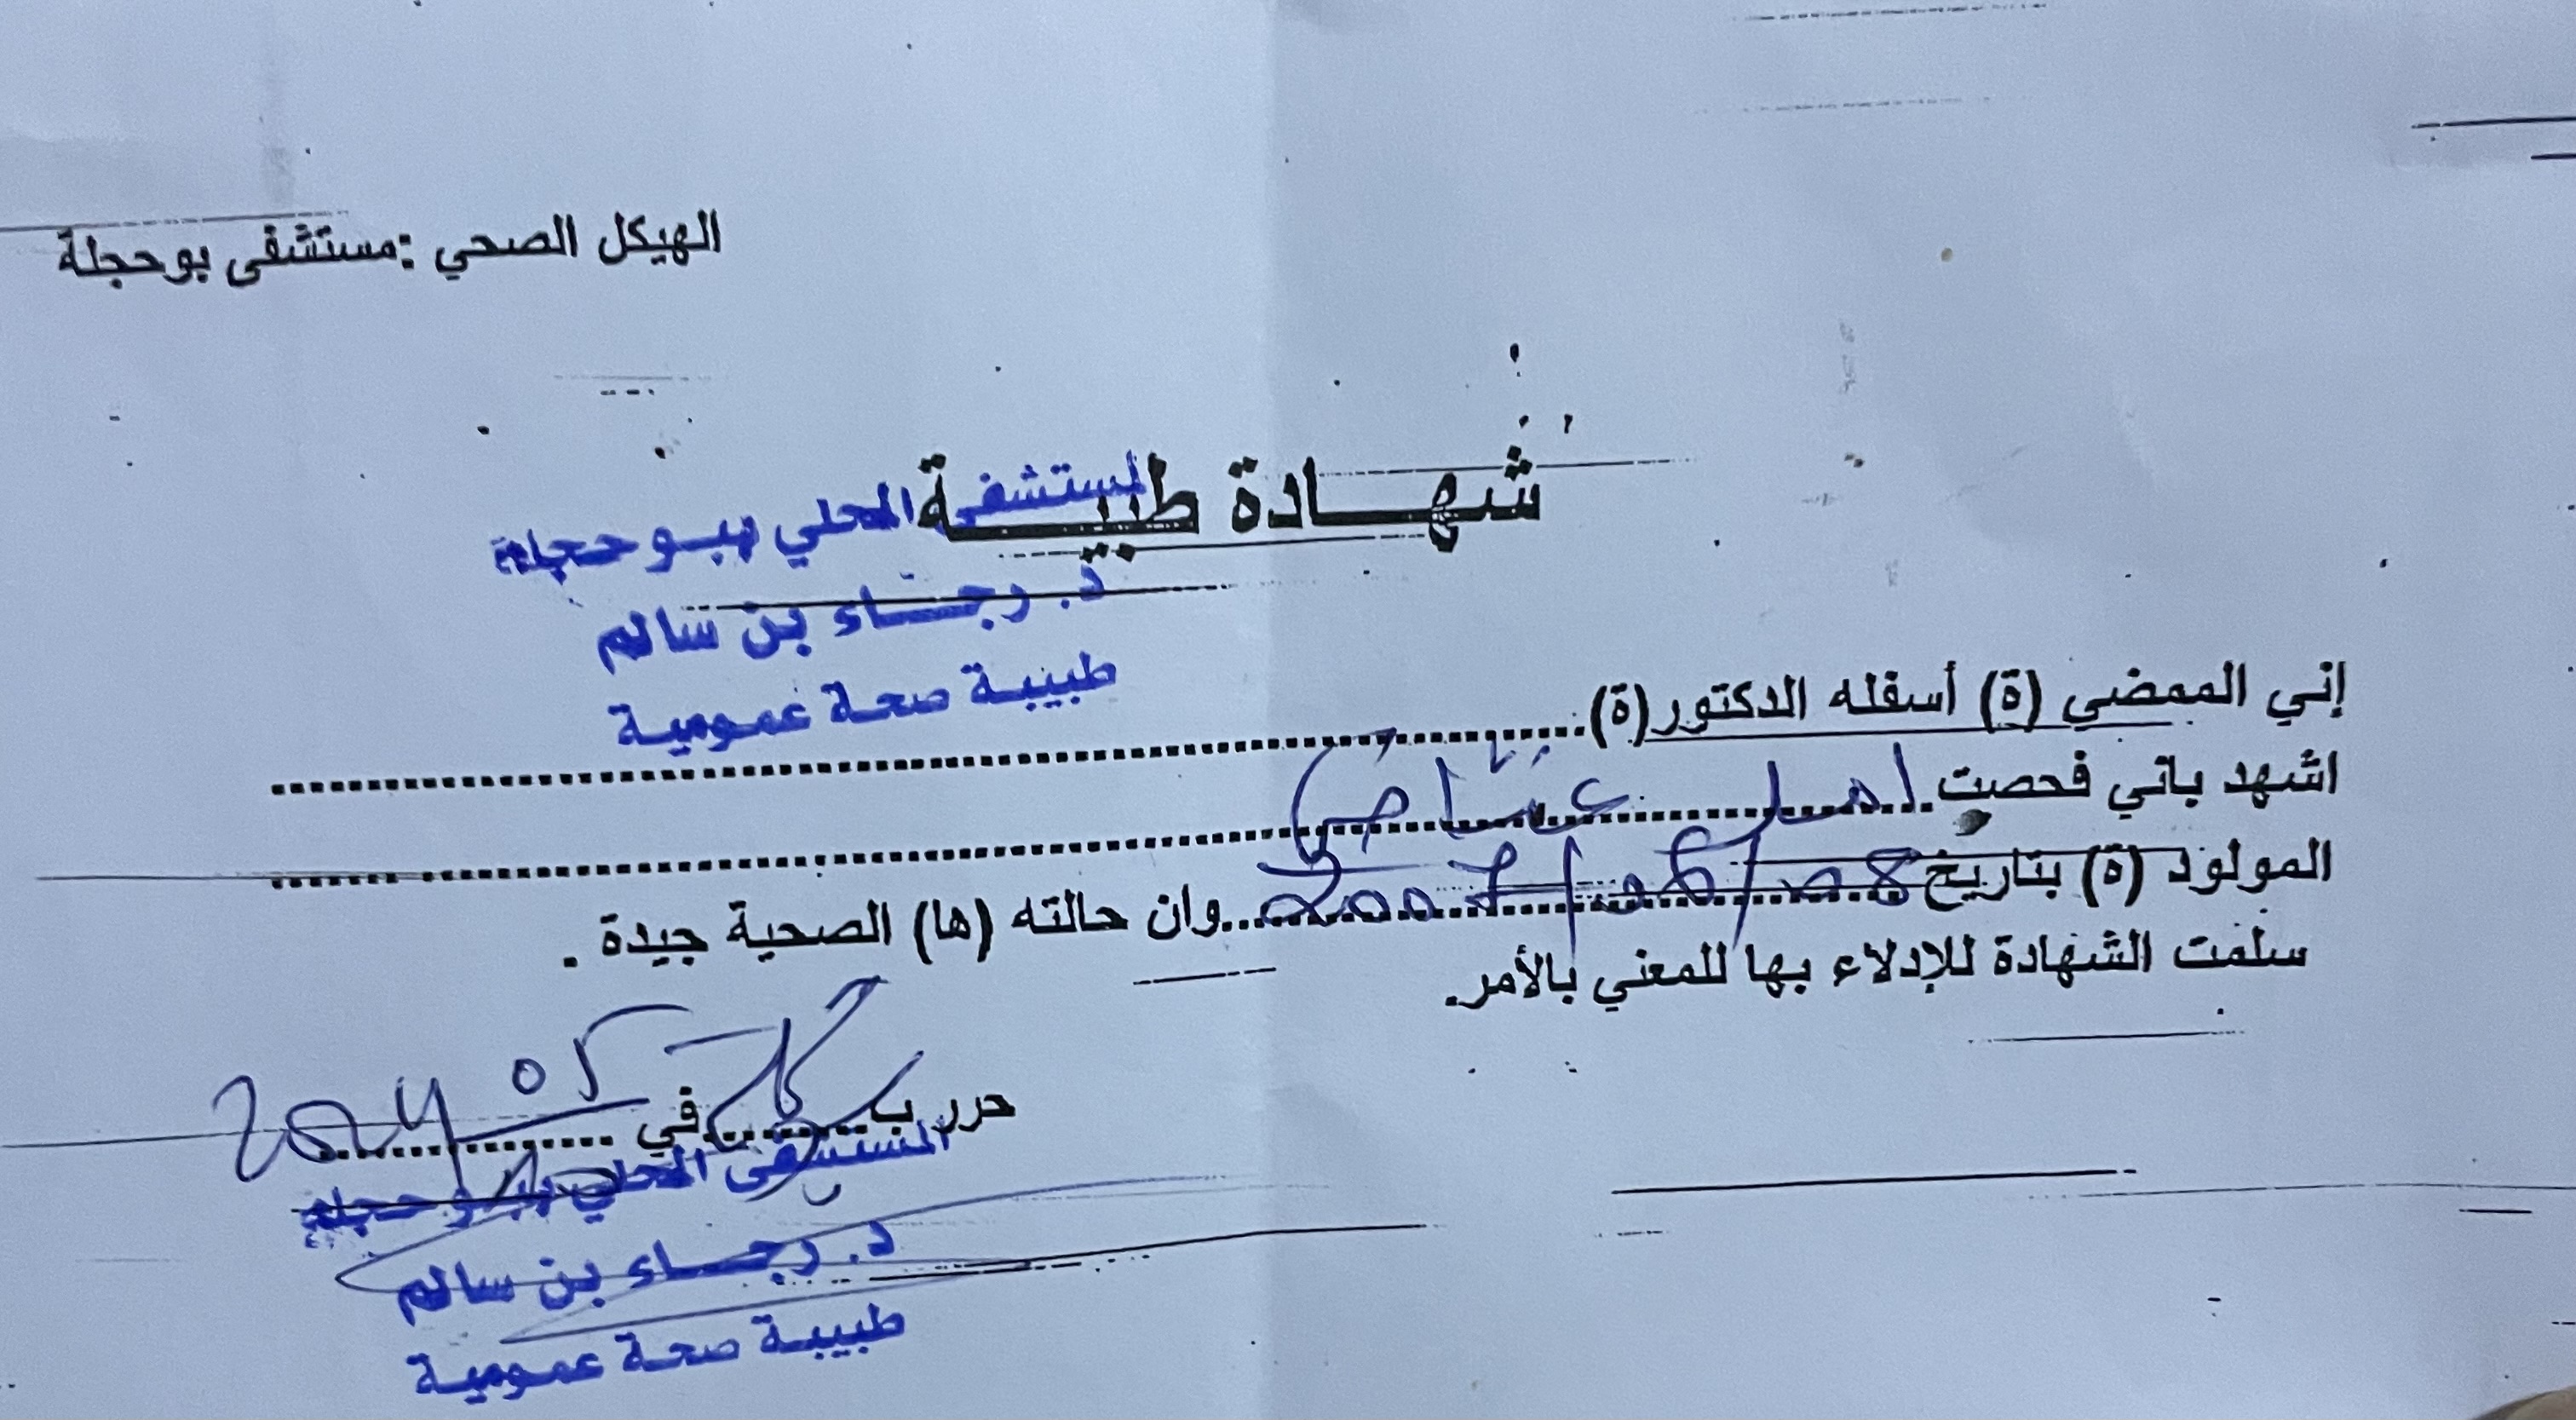 الهيكل الصحي :مستشفى بوحجلة
شهادة طبية
المستشفى المحلي ببوحجلة
د. رجاء بن سالم
طبيبة صحة عمومية
إني الممضي (ة) أسفله الدكتور(ة)
اشهد باني فحصت
المولود (ة) بتاريخ وان حالته (ها) الصحية جيدة .
سلمت الشهادة للإدلاء بها للمعني بالأمر.
حرر ب في
المستشفى المحلي ببوحجلة
د. رجاء بن سالم
طبيبة صحة عمومية